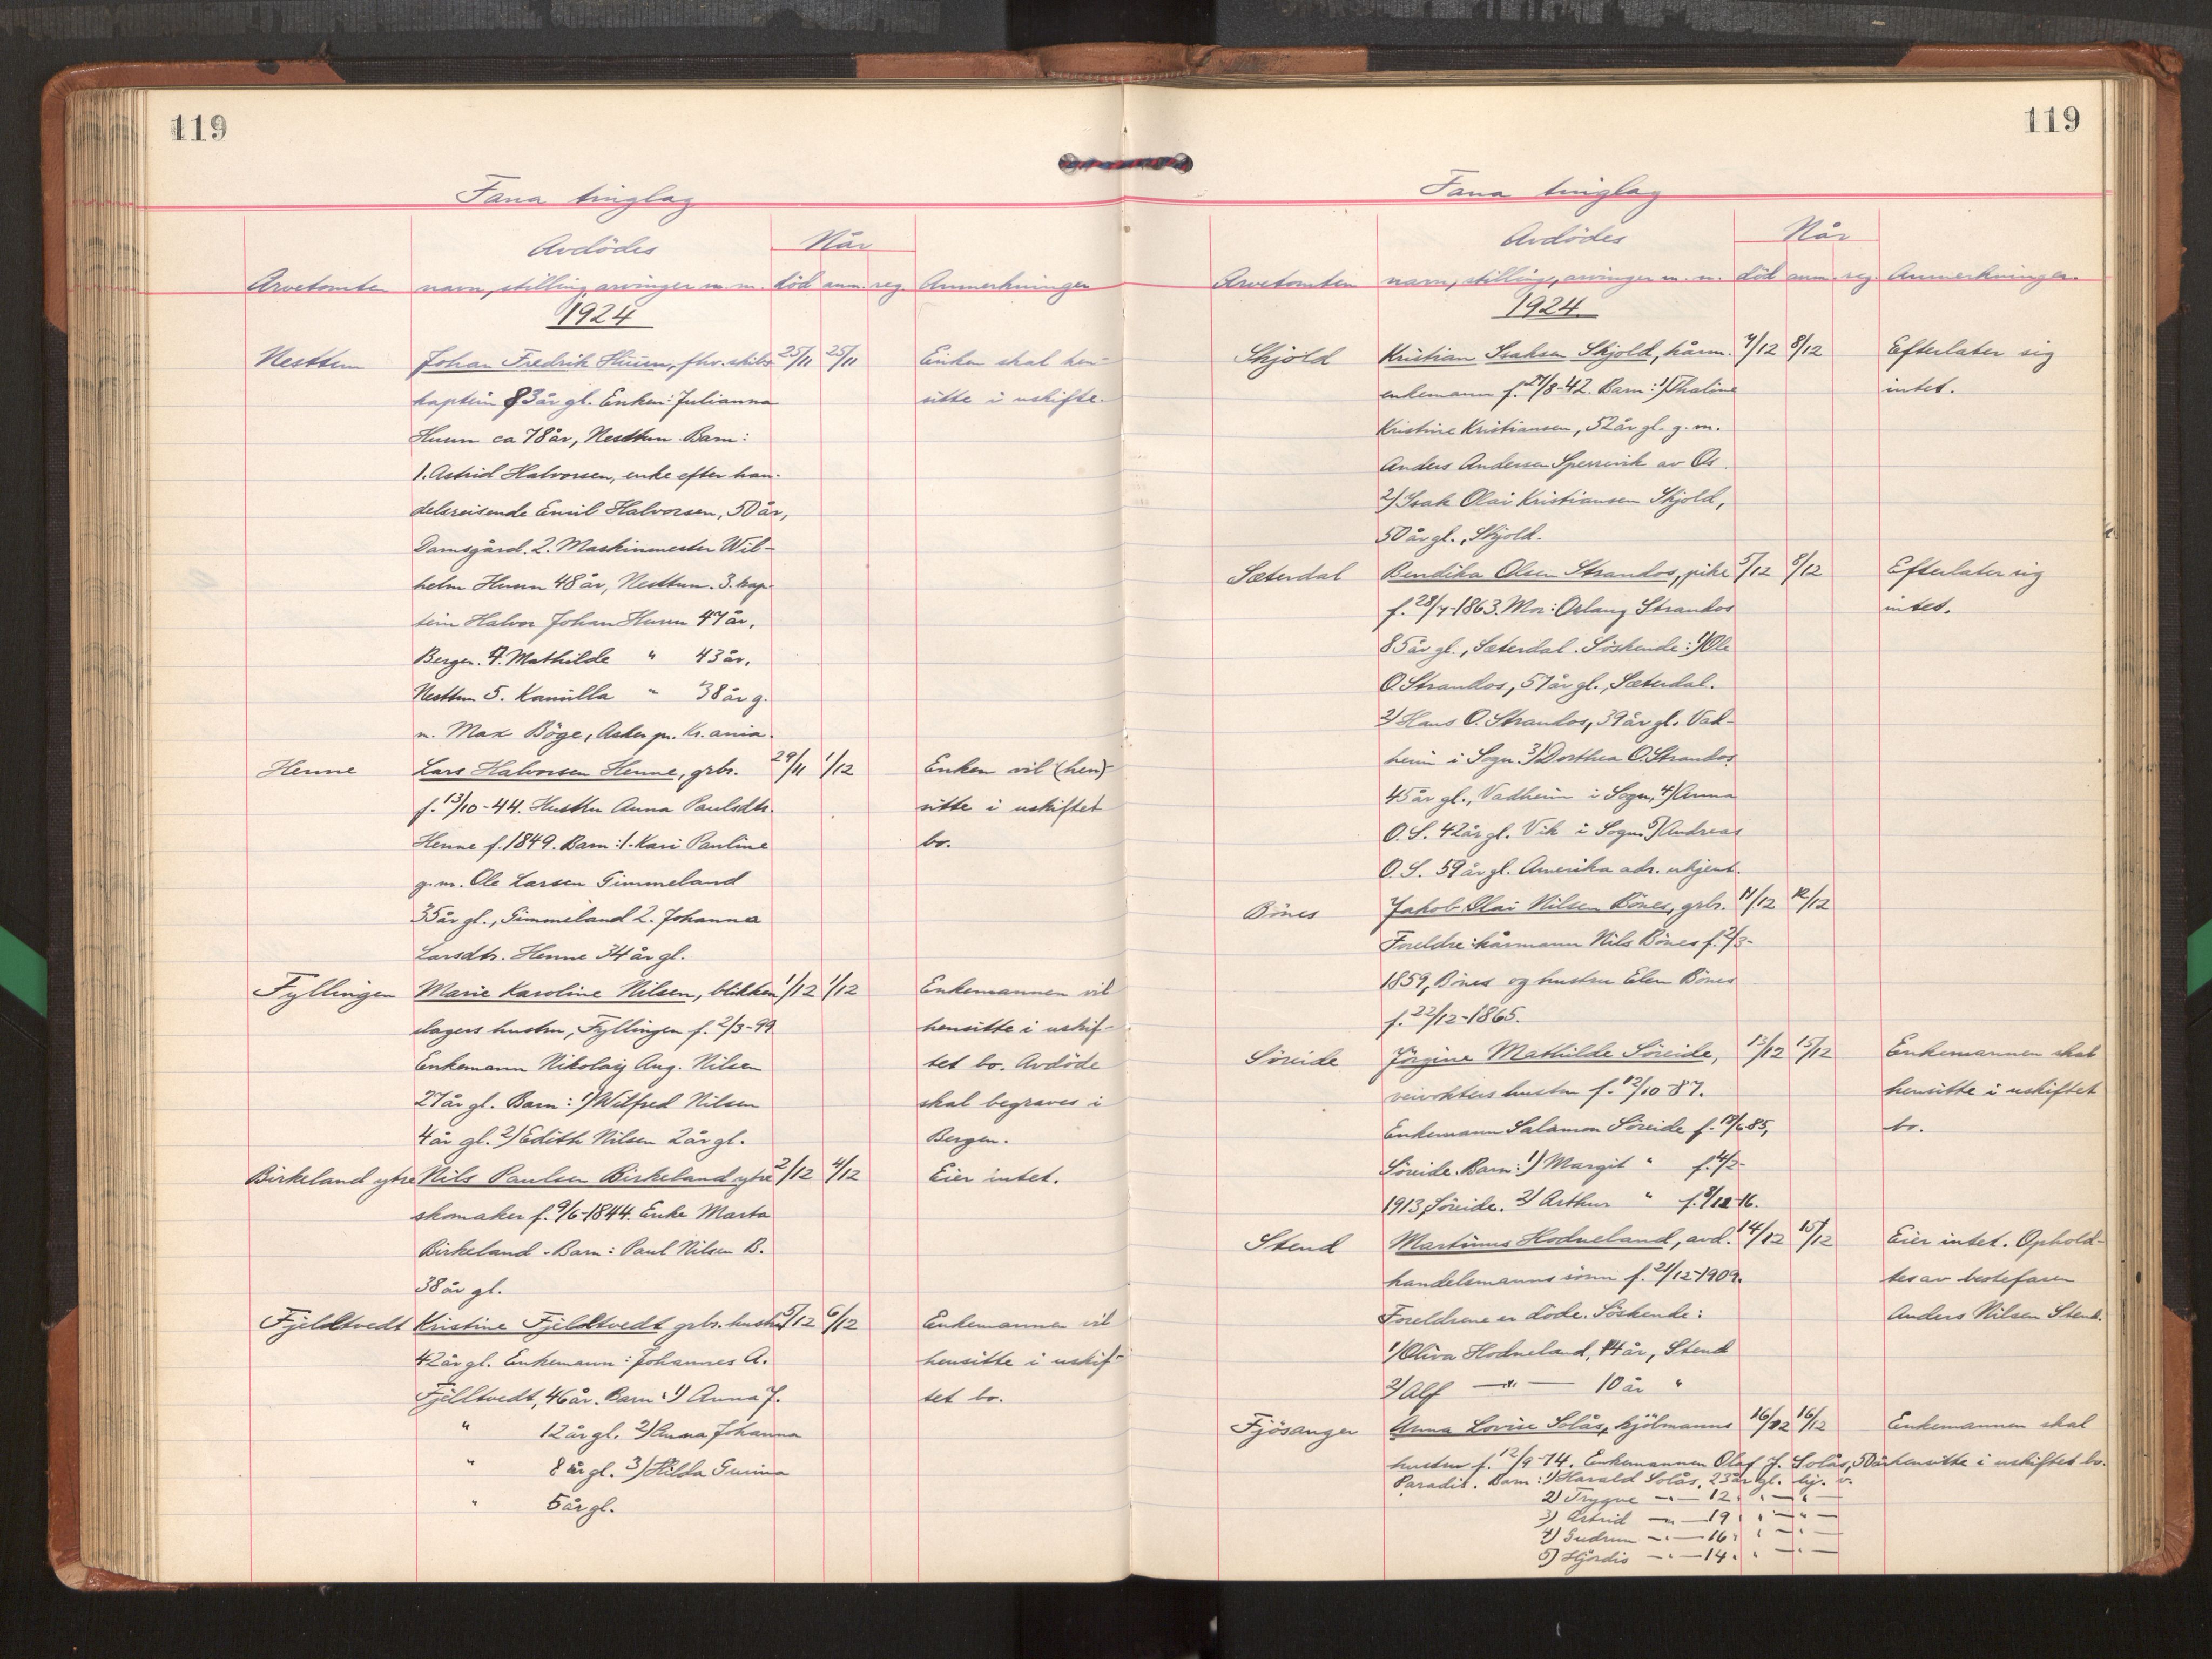 119
Fana tinglag
Avdödes
Når
Arvetomten navn, stilling, arvinger m. m. död anm. reg. Anmerkninger
1924
Nesttun Johan Fredrik Huun, fhv. skibs- 25/11 25/11 Enken skal hen-
kaptein 83 år gl. Enken: Julianna sitte i uskifte.
Huun ca 78 år, Nesttun. Barn:
1. Astrid Halvorsen, enke efter han-
delsreisende Emil Halvorsen, 50 år,
Damsgård. 2. Maskinmester Wil-
helm Huun 48 år, Nesttun. 3. kap-
tein Halvor Johan Huun 47 år,
Bergen. 4. Mathilde " 43 år,
Nesttun 5. Kamilla " 38 år g.
m. Max Böge, Asker pr. Kr.ania.
Henne Lars Halvorsen Henne, grbr. 29/11 1/12 Enken vil (hen)-
f. 13/10-44. Hustru Anna Paulsdtr. sitte i uskiftet
Henne f. 1849. Barn: 1. Kari Pauline bo.
g. m. Ole Larsen Gimmeland
35 år gl., Gimmeland 2. Johanna
Larsdtr. Henne 34 år gl.
Fyllingen Marie Karoline Nilsen, blikken- 1/12 1/12 Enkemannen vil
slagers hustru, Fyllingen f. 2/3-99. hensitte i uskif-
Enkemann Nikolaij Aug. Nilsen tet bo. Avdöde
27 år gl. Barn: 1) Wilfred Nilsen skal begraves i
4 år gl. 2) Edith Nilsen 2 år gl. Bergen.
Birkeland ytre Nils Paulsen Birkeland ytre 2/12 4/12 Eier intet.
skomaker f. 9/6-1844. Enke Marta
Birkeland - Barn: Paul Nilsen B.
38 år gl.
Fjeldtvedt Kristine Fjeldtvedt grbr. hustru 5/12 6/12 Enkemannen vil
42 år gl. Enkemann: Johannes A. hensitte i uskif-
Fjelltvedt, 46 år. Barn: 1) Anna J. tet bo.
" 12 år gl. 2) Anna Johanna
" 8 år gl. 3) Hilda Gurina
" 5 år gl.
119
Fana tinglag
Avdödes
Når
Arvetomten navn, stilling, arvinger m. m. död anm. reg. Anmerkninger.
1924.
Skjold Kristian Isaksen Skjold, kårm. 7/12 8/12 Efterlater sig
enkemann f. 27/8-42. Barn: 1) Thaline intet.
Kristine Kristiansen, 52 år gl. g. m.
Anders Andersen Sperrevik av Os.
2) Isak Olai Kristiansen Skjold,
50 år gl., Skjold.
Sæterdal Bendika Olsen Strandos, pike 5/12 8/12 Efterlater sig
f. 28/7-1863. Mor: Oslaug Strandos intet.
85 år gl., Sæterdal. Söskende: 1) Ole
O. Strandos, 57 år gl., Sæterdal.
2) Hans O. Strandos, 39 år gl. Vad-
heim i Sogn. 3) Dorthea O. Strandos
45 år gl., Vadheim i Sogn, 4) Anna
O. S. 42 år gl. Vik i Sogn 5) Andreas
O. S. 59 år gl. Amerika adr. ukjent.
Bönes Jakob Olai Nilsen Bönes, grbr. 11/12 12/12
Foreldre: kårmann Nils Bönes f. 2/3-
1859, Bönes og hustru Elen Bönes
f. 22/12-1865.
Söreide Jörgine Mathilde Söreide, 13/12 15/12 Enkemannen skal
veivokters hustru f. 12/10 87. hensitte i uskiftet
Enkemann Salamon Söreide f. 18/6 85, bo.
Söreide. Barn: 1) Margit " f. 4/2-
1913, Söreide. 2) Arthur " f. 8/12-16.
Stend Martinus Hodneland, avd. 14/12 15/12 Eier intet. Ophold-
handelsmanns sönn f. 21/12-1909. tes av bestefaren
Foreldrene er döde. Söskende: Anders Nilsen Stend.
1) Oliva Hodneland, 14 år, Stend
2) Alf — " — 10 år "
Fjösanger Anna Lovise Solås, kjölmanns 16/12 16/12 Enkemannen skal
hustru f. 12/9-74. Enkemannen Olaf J. Solås, 50 år hensitte i uskiftet bo.
Paradis. Barn: 1) Harald Solås, 23 år gl. hj. v.
2) Trygve — " — 12 " " — " —
3) Astrid — " — 19 " " — " —
4) Gudrun — " — 16 " " — " —
5) Hjördis — " — 14 " " — " —